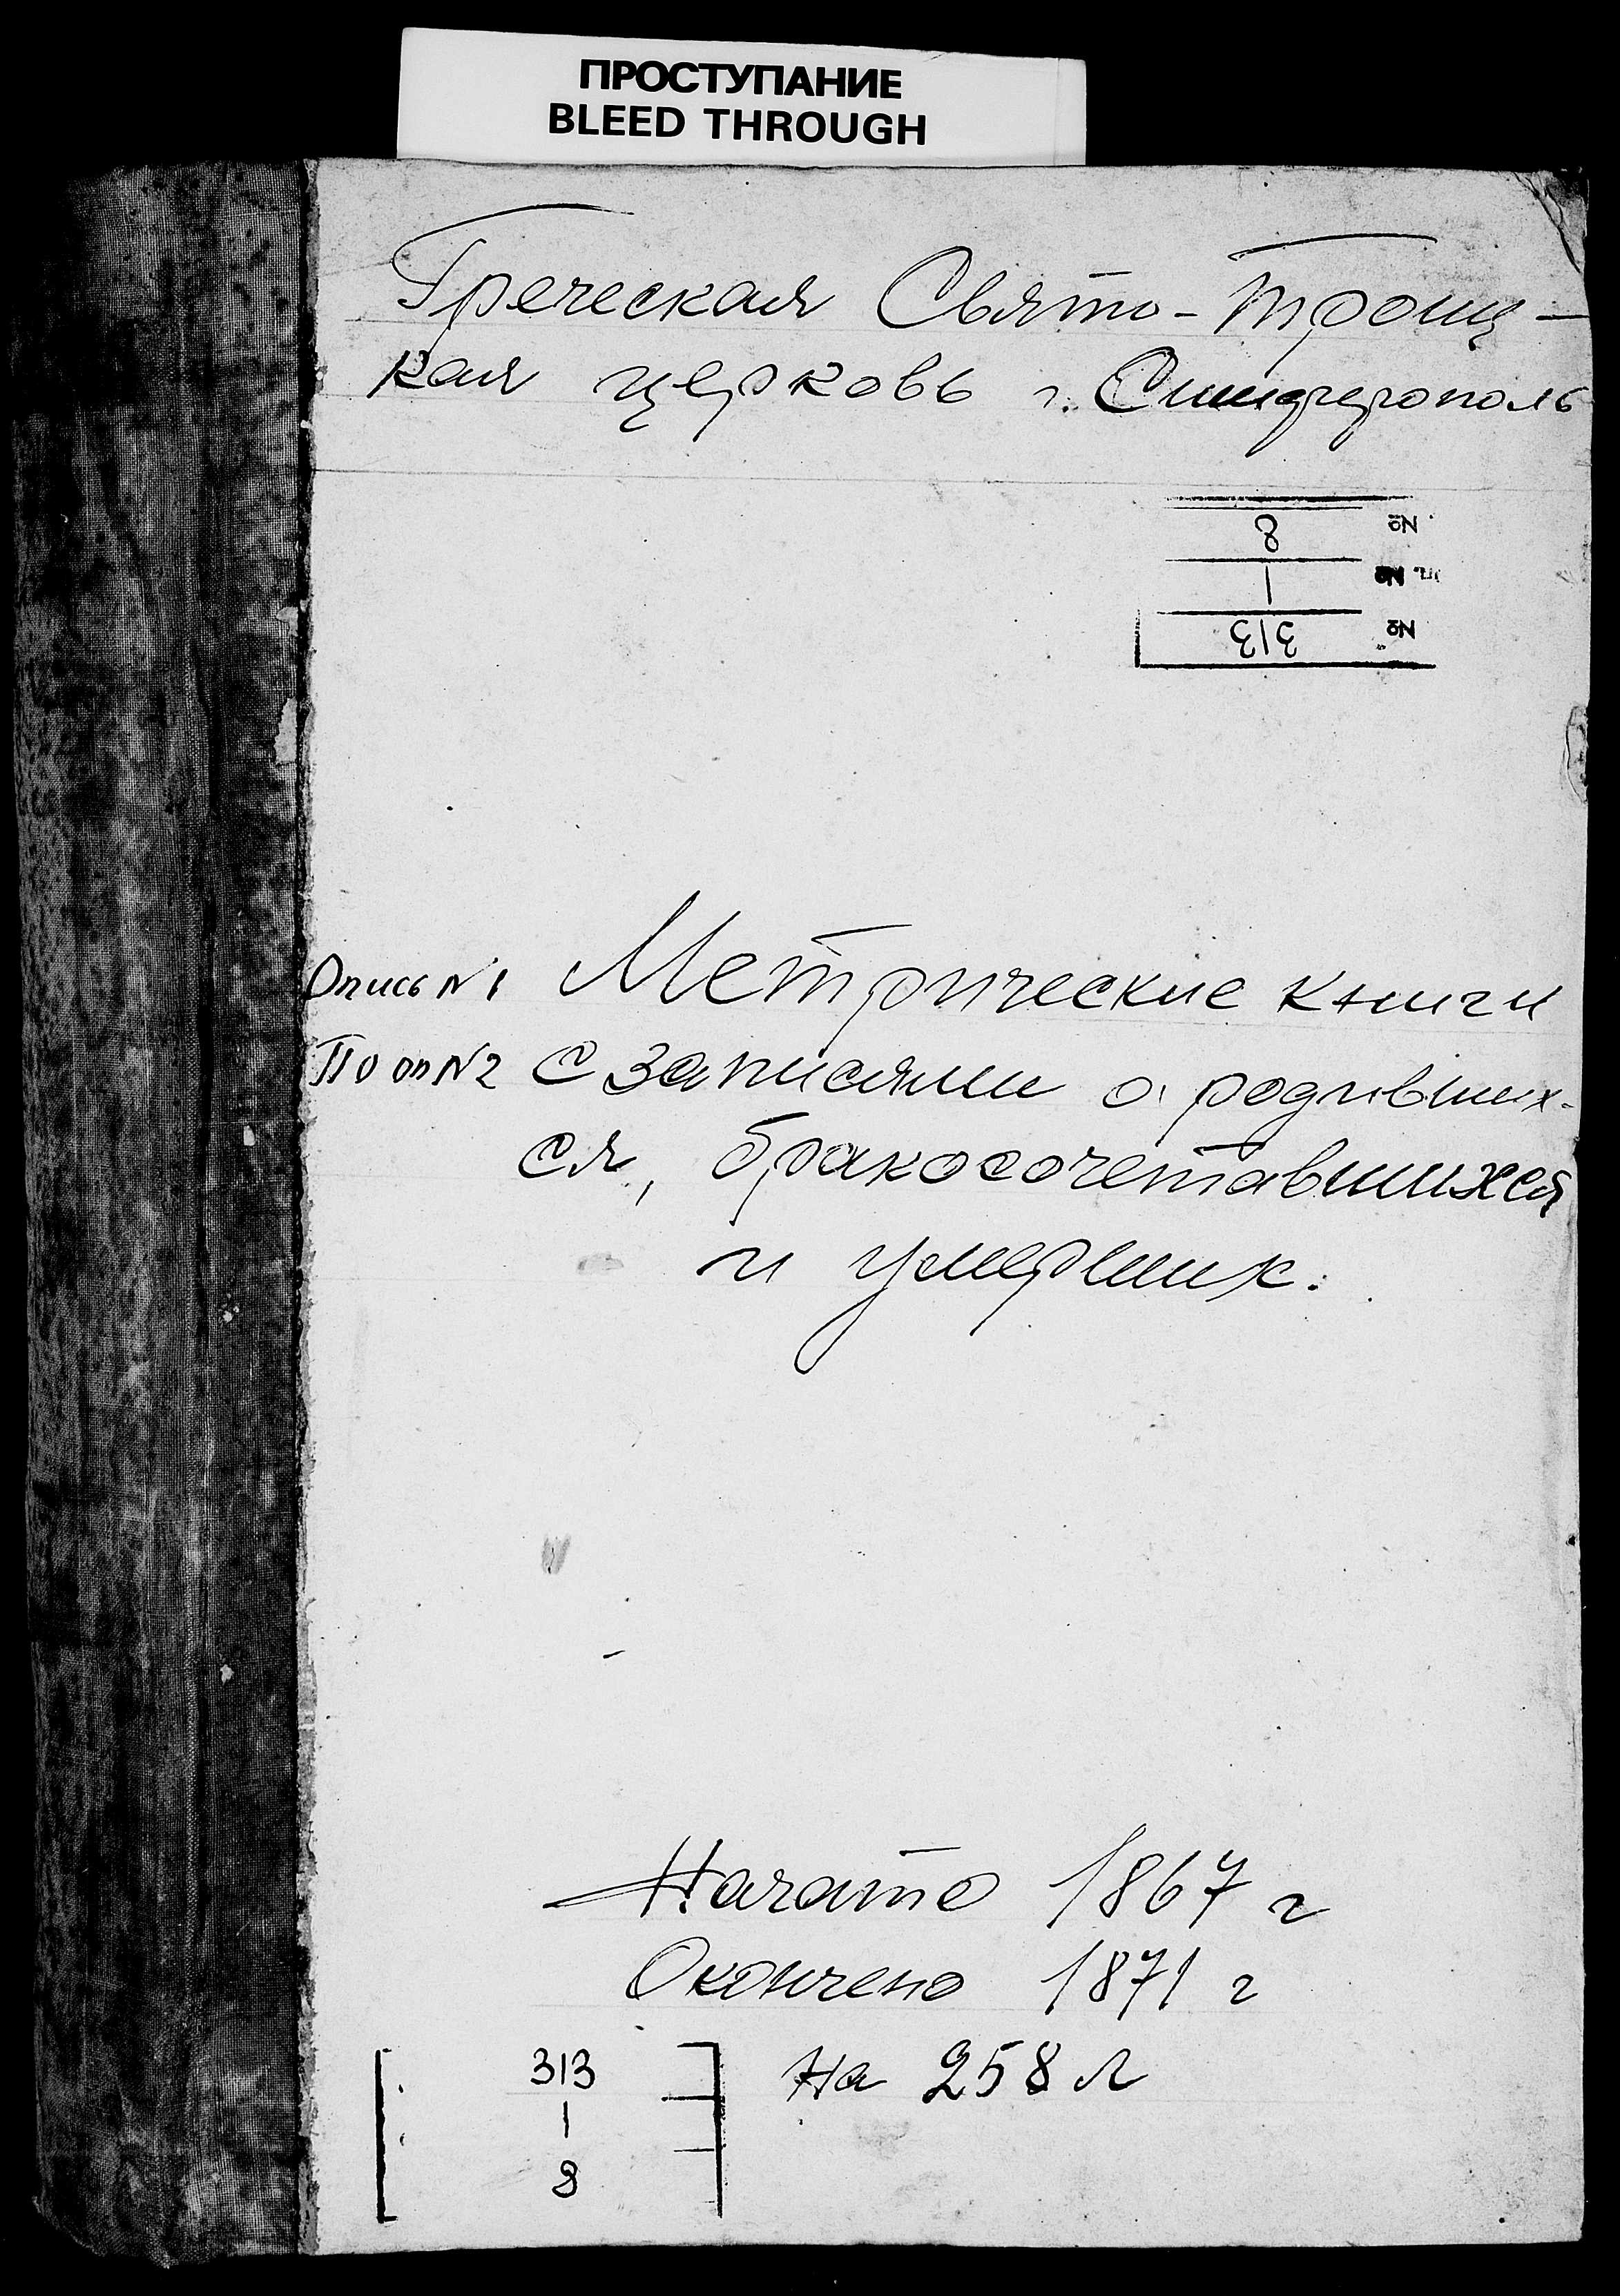 ПРОСТУПАНИЕ
BLEED THROUGH
Греческая Свято-Троиц-
кая церковь г. Симферополь
№ 8
№ 1
№ 313
Опись N 1 Метрические книги
По оп N 2 с записями о родивших-
ся, бракосочетавшихся
и умерших.
Начато 1867 г
Окончено 1871 г
313 на 258 л
1
8